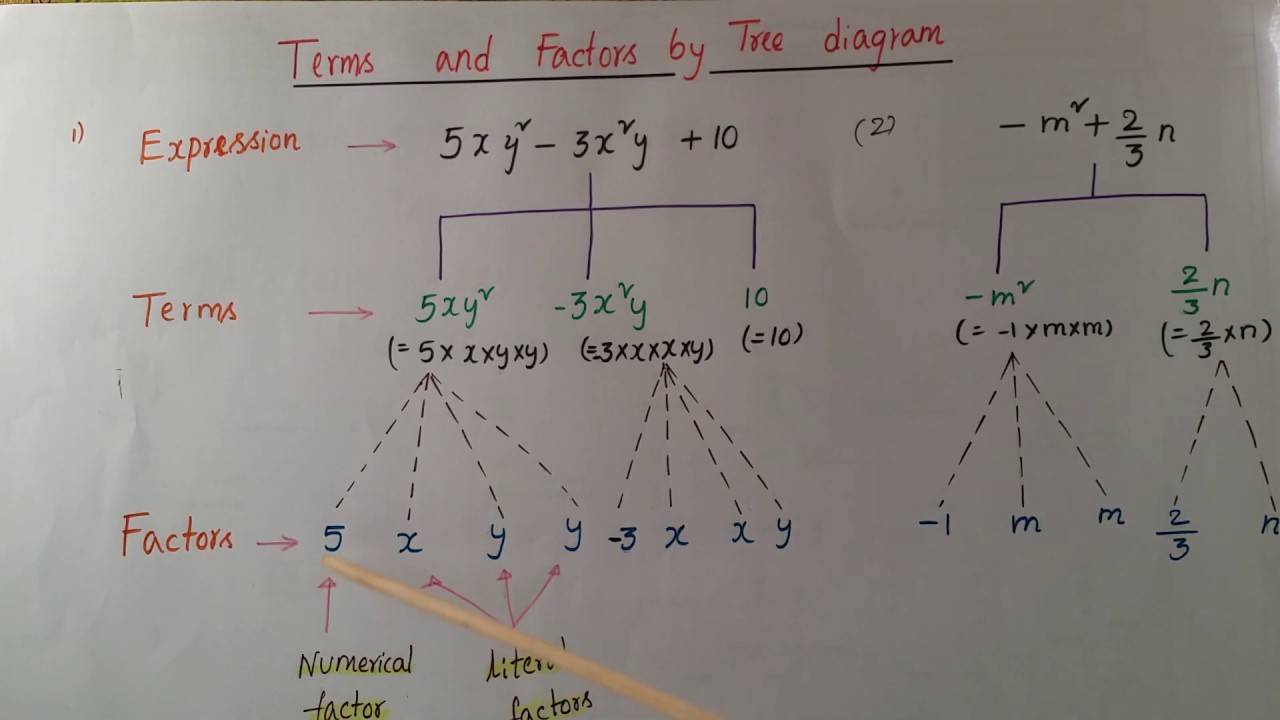 Terms and Factors by Tree diagram
1) Expression → 5xy² − 3x²y + 10
(2) − m² + 2/3 n
Terms → 5xy² -3x²y 10
-m² 2/3 n
(= 5 × x×y×y) (=-3×x×x×y) (=10)
(= -1×m×m) (= 2/3 ×n)
Factors → 5 x y y -3 x x y
-1 m m 2/3 n
Numerical factor
factors